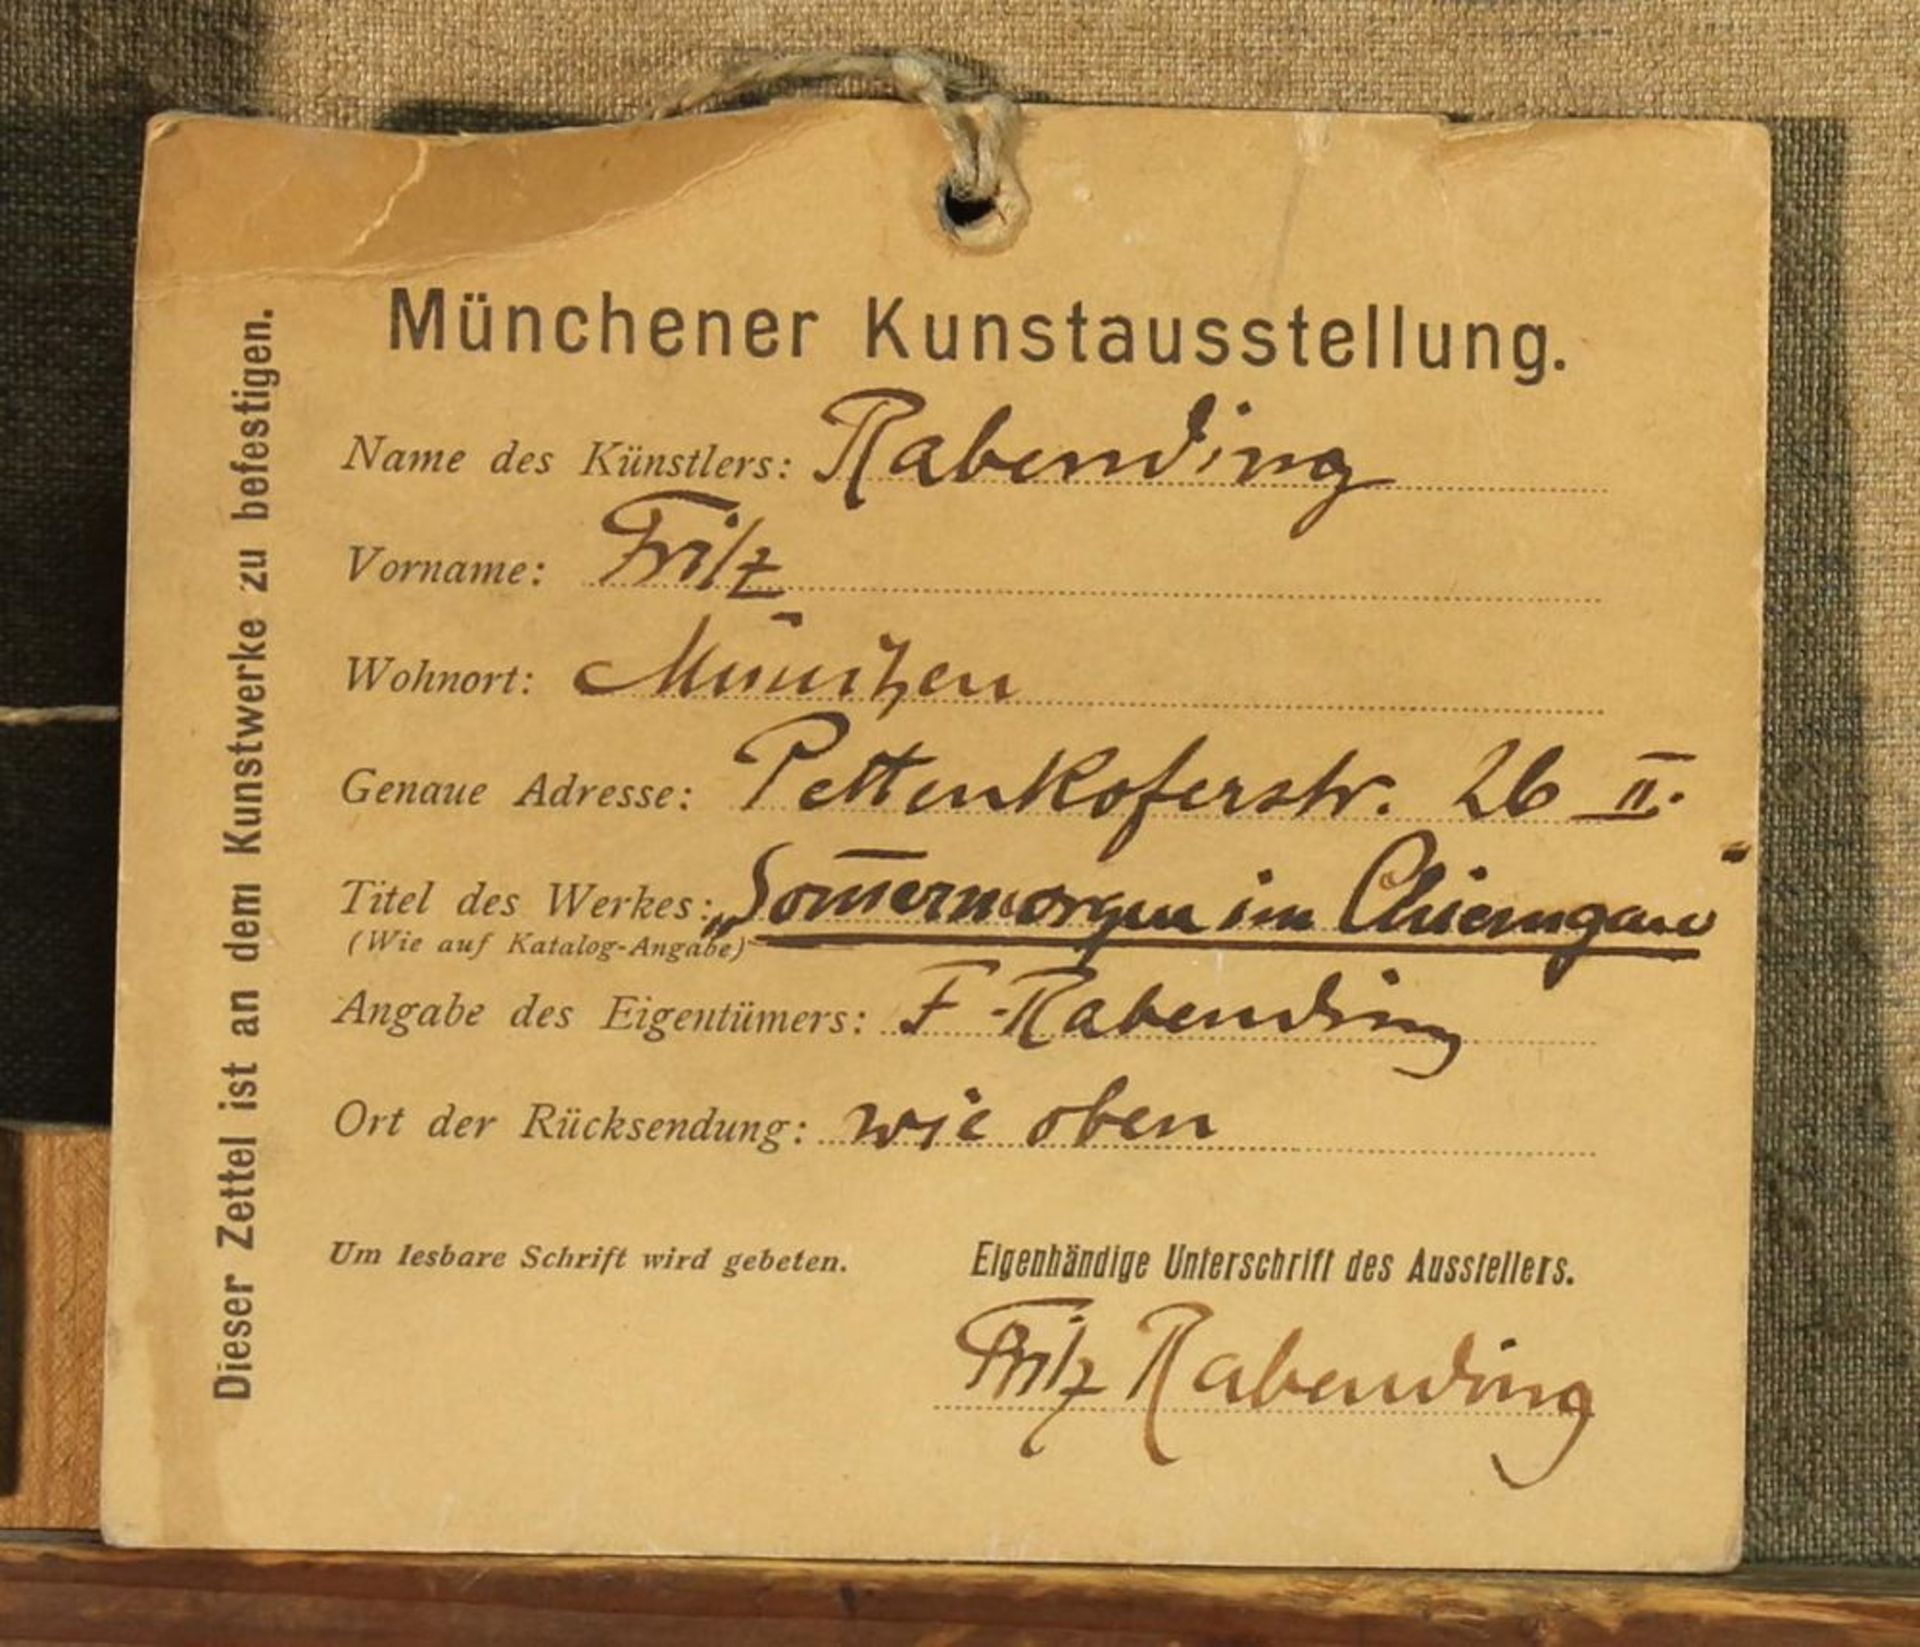 Münchener Kunstausstellung.
Name des Künstlers: Rabending
Vorname: Fritz
Wohnort: München
Genaue Adresse: Pettenkoferstr. 26 II.
Titel des Werkes: „Som̅ermorgen im Chiemgau“
(Wie auf Katalog-Angabe)
Angabe des Eigentümers: F. Rabending
Ort der Rücksendung: wie oben
Um lesbare Schrift wird gebeten.
Eigenhändige Unterschrift des Ausstellers.
Fritz Rabending
Dieser Zettel ist an dem Kunstwerke zu befestigen.